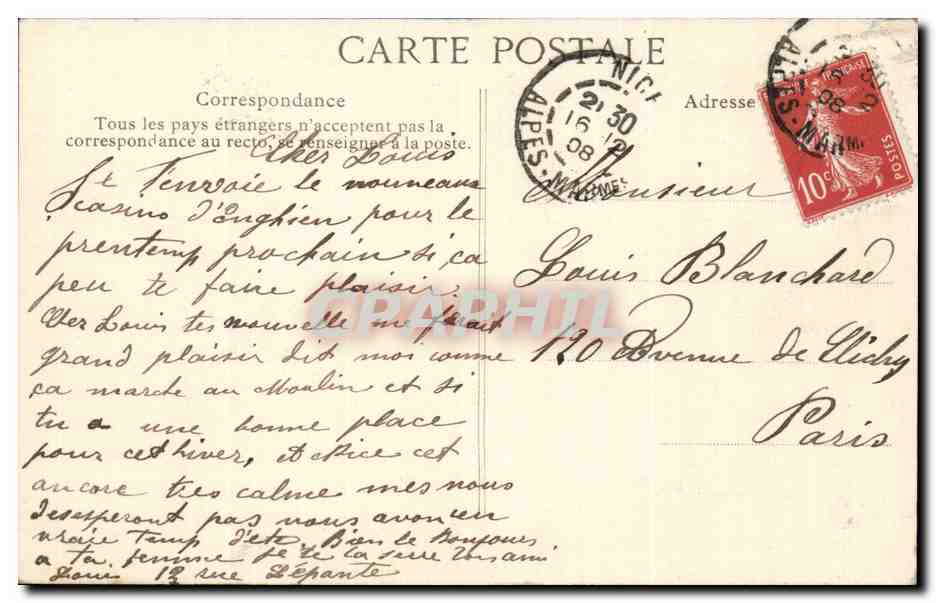 CARTE POSTALE
Correspondance
Tous les pays étrangers n'acceptent pas la
correspondance au recto, se renseigner à la poste.
Cher Louis
Je t'envoie le nouveaux
casino d'Enghien pour le
prentemp prochain si ça
peu te faire plaisir.
Cher Louis tes nouvelle me ferait
grand plaisir dit moi comme
ça marche au Moulin et si
tu a une bonne place
pour cet hiver, A Nice cet
ancore tres calme mes nous
desesperont pas nous avon un
vraie temp d'été. Bien le Bonjours
a ta femme je te la serre ton ami
Louis 12 rue Lépante
Adresse
Monsieur
Louis Blanchard
120 Avenue de Clichy
Paris
NICE
21 30
16 12
08
ALPES-MARMES
ALPES-MARM
08
FRANÇAISE
POSTES
10c
CPAPHIL